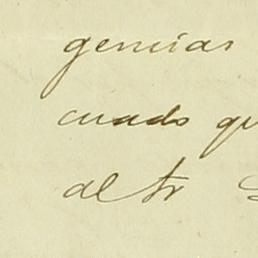 gencias
cuado qu
al Sr